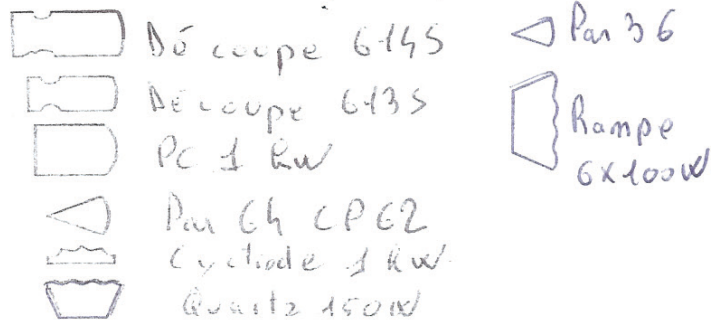 Découpe 614S
Découpe 613S
PC 1 kW
Par 64 CP62
Cycliode 1 kW
Quartz 150W
Par 36
Rampe
6x100W